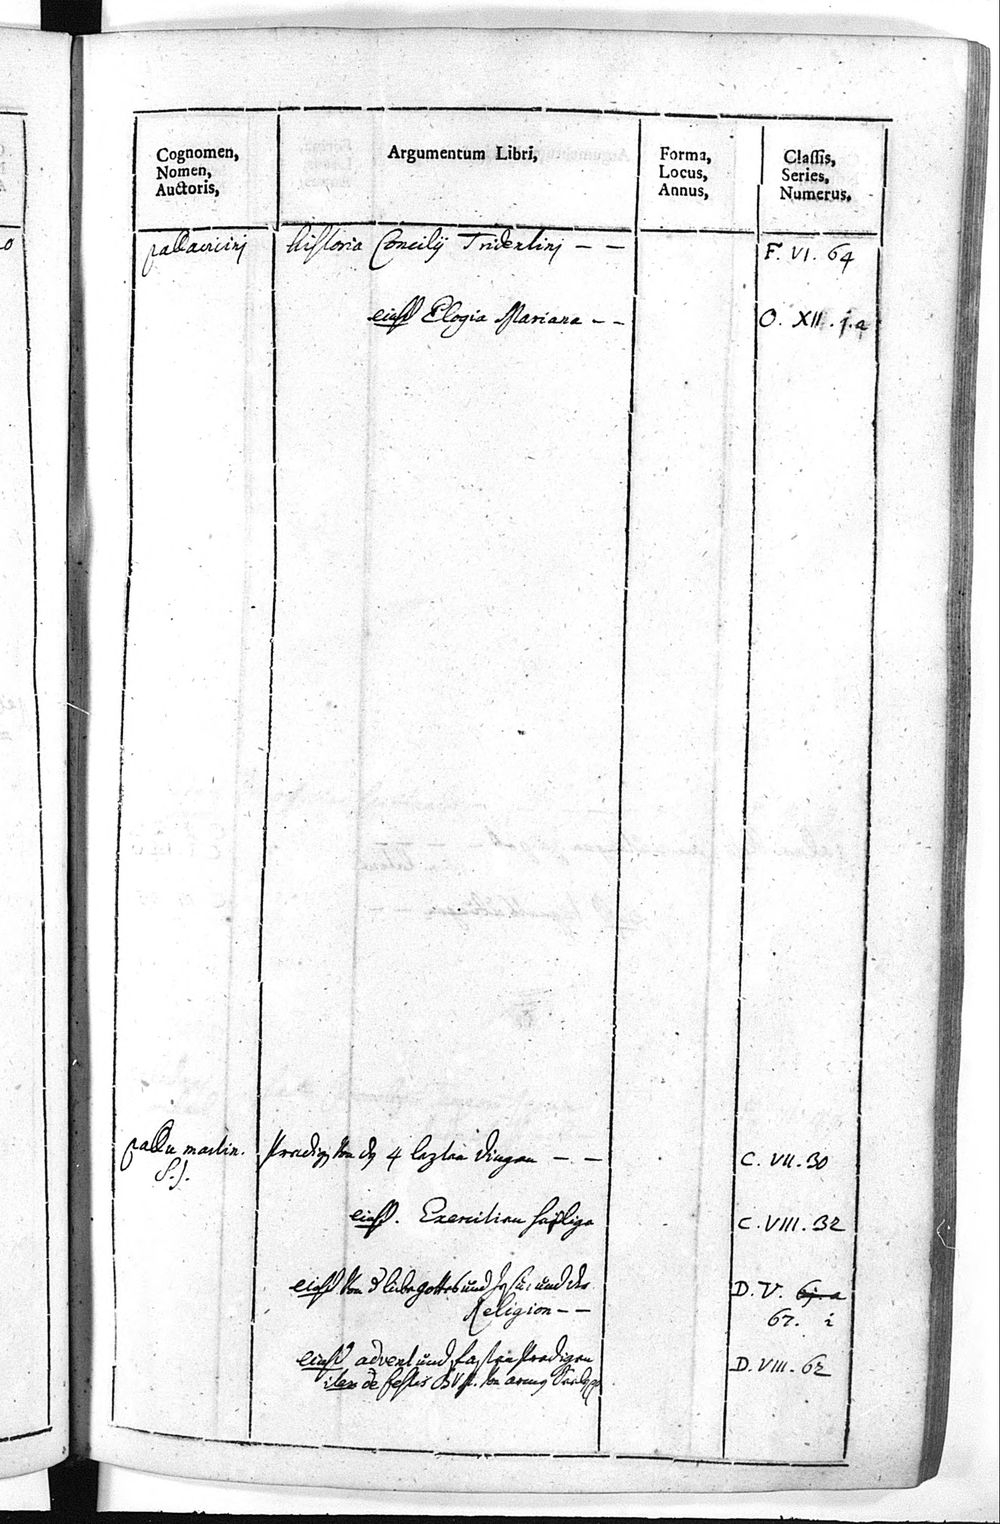 Cognomen,
Nomen,
Auctoris,
Argumentum Libri,
Forma,
Locus,
Annus,
Classis,
Series,
Numerus,
pallavicinj historia Concilij Tridentinj - - F. VI. 64
eiusd Elogia Mariana - - O. XII. j.a
pallu martin. Predig Von dn 4 lezten dingen - - C. VII. 30
S.J.
eiusd. Exercitien heilige C. VIII. 32
eiusd Von d liebe gottes und Jesu, und der D. V. 6j.a
Religion - - 67. i
eiusd advent und fasten Predigen D. VIII. 62
item de festis BV M. Von armen Seelen